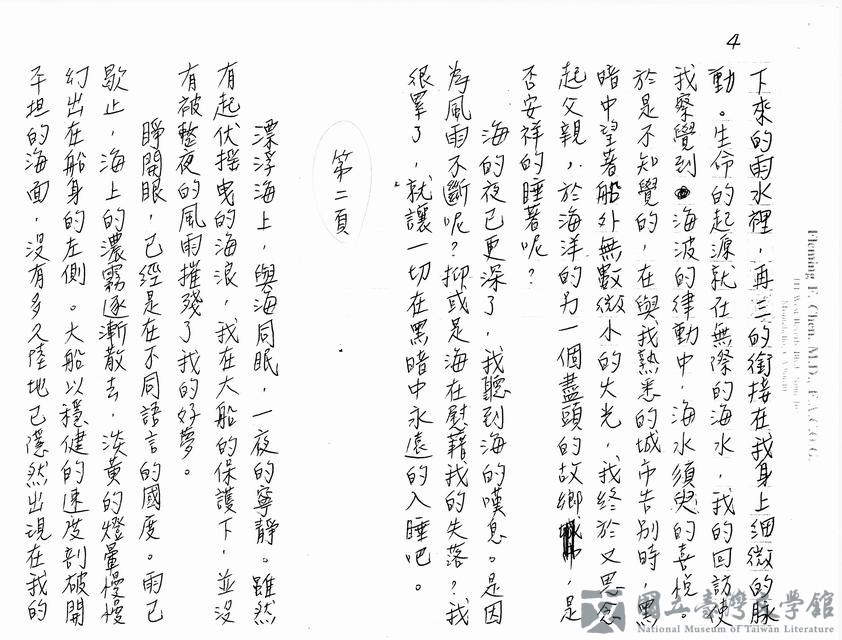 4
下來的雨水裡，再三的銜接在我身上細微的脈
動。生命的起源就在無際的海水，我的回訪使
我察覺到海波的律動中，海水須臾的喜悅。
於是不知覺的，在與我熟悉的城市告別時，黑
暗中望著船外無數微小的火光，我終於又思念
起父親，於海洋的另一個盡頭的故鄉，是
否安祥的睡著呢？
海的夜已更深了，我聽到海的嘆息。是因
為風雨不斷呢？抑或是海在慰藉我的失落？我
很累了，就讓一切在黑暗中永遠的入睡吧。
第二頁
漂浮海上，與海同眠，一夜的寧靜。雖然
有起伏搖曳的海浪，我在大船的保護下，並沒
有被整夜的風雨摧殘了我的好夢。
睜開眼，已經是在不同語言的國度。雨已
歇止，海上的濃霧逐漸散去，淡黃的燈暈慢慢
幻出在船身的左側。大船以穩健的速度剖破開
平坦的海面，沒有多久陸地已隱然出現在我的
Fleming F. Chen, M.D., F.A.C.O.G.
國立臺灣文學館
National Museum of Taiwan Literature